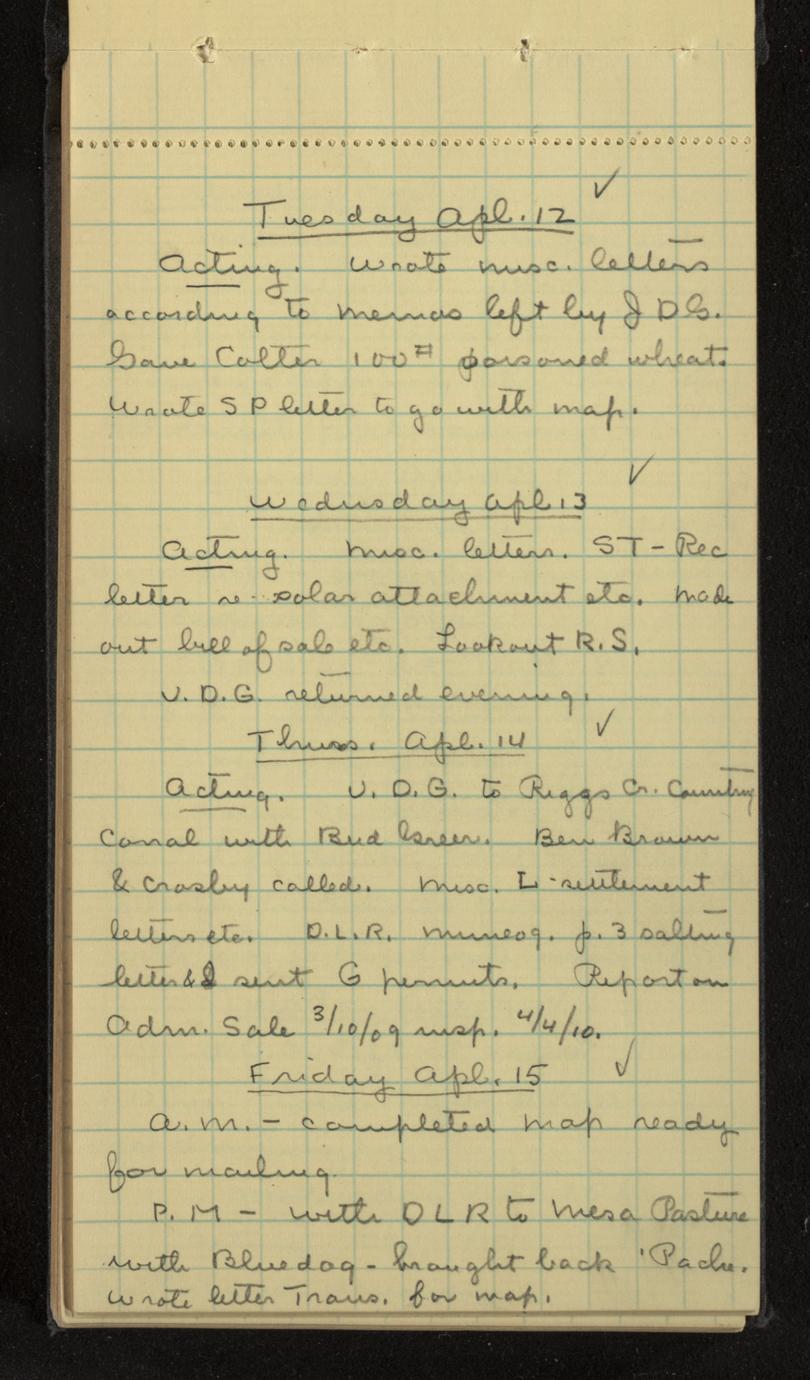 ✓
Tuesday Apl. 12
Acting. Wrote misc. letters
according to memos left by J D G.
Gave Colter 100# poisoned wheat.
Wrote S P letter to go with map.
✓
Wednesday Apl. 13
Acting. Misc. letters. ST - Rec
letter re - solar attachment etc. Made
out bill of sale etc. Lookout R.S.
J. D. G. returned evening.
✓
Thurs. Apl. 14
Acting. J. D. G. to Riggs Cr. Counting
Corral with Bud Greer. Ben Brown
& Crosby called. Misc. L-settlement
letters etc. D.L.R. mimeog. p. 3 salting
letter & I sent G permits. Report on
Adm. Sale 3/10/09 insp. 4/4/10.
✓
Friday Apl. 15
A.M. - completed map ready
for mailing.
P.M - with DLR to Mesa Pasture
with Bluedog - brought back 'Pache.
Wrote letter Trans. for map.